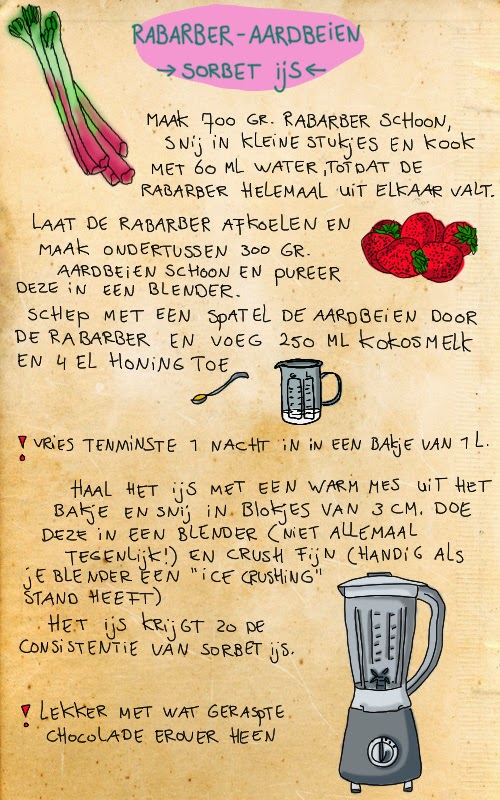 RABARBER-AARDBEIEN
→ SORBET ijS ←
MAAK 700 GR. RABARBER SCHOON,
SNIJ IN KLEINE STUKJES EN KOOK
MET 60 ML WATER, TOTDAT DE
RABARBER HELEMAAL UIT ELKAAR VALT.
LAAT DE RABARBER AFKOELEN EN
MAAK ONDERTUSSEN 300 GR.
AARDBEIEN SCHOON EN PUREER
DEZE IN EEN BLENDER.
SCHEP MET EEN SPATEL DE AARDBEIEN DOOR
DE RABARBER EN VOEG 250 ML KOKOSMELK
EN 4 EL HONING TOE
! VRIES TENMINSTE 1 NACHT IN IN EEN BAKJE VAN 1 L.
HAAL HET IJS MET EEN WARM MES UIT HET
BAKJE EN SNIJ IN BLOKJES VAN 3 CM. DOE
DEZE IN EEN BLENDER (NIET ALLEMAAL
TEGENLIJK!) EN CRUSH FIJN (HANDIG ALS
JE BLENDER EEN "ICE CRUSHING"
STAND HEEFT)
HET IJS KRIJGT ZO DE
CONSISTENTIE VAN SORBET IJS.
! LEKKER MET WAT GERASPTE
CHOCOLADE EROVER HEEN